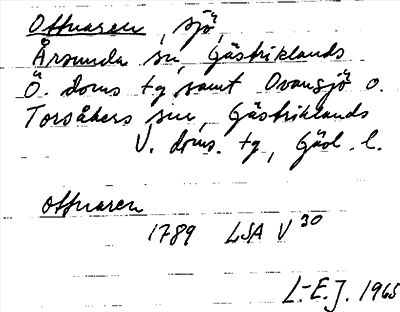 Ottnaren, sjö,
Årsunda sn, Gästriklands
Ö. doms. tg samt Ovansjö o.
Torsåkers snr, Gästriklands
V. doms. tg, Gävl. l.
Ottnaren
1789 LSA V 30
L.-E. J. 1965